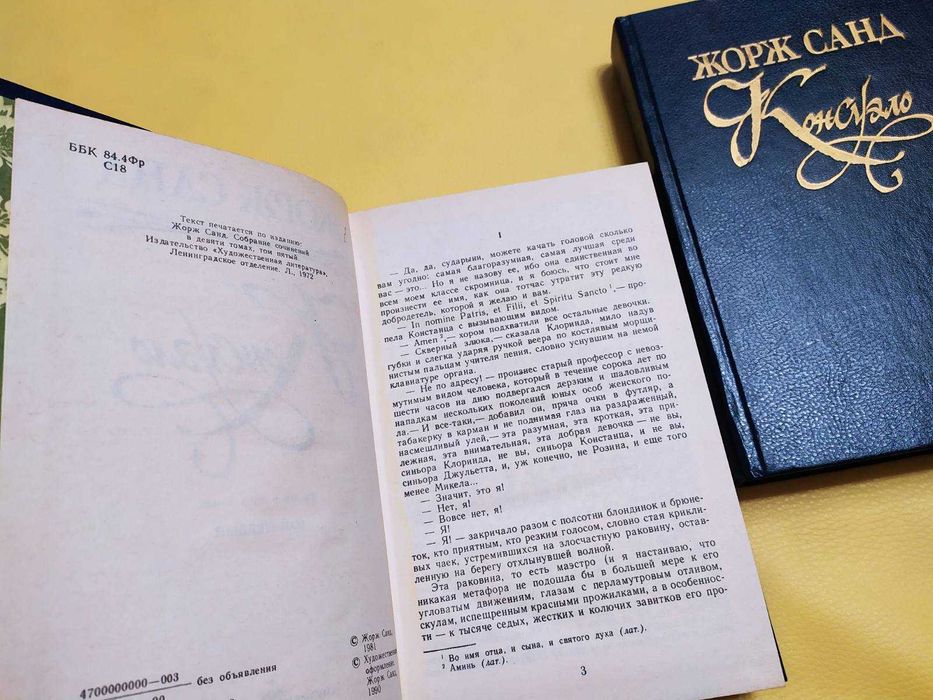 ББК 84.4Фр
С18
Текст печатается по изданию:
Жорж Санд. Собрание сочинений
в девяти томах, том пятый
Издательство «Художественная литература»,
Ленинградское отделение. Л., 1972
© Жорж Санд,
1981
© Художестве
оформление
Жорж Санд,
1990
4700000000—003 без объявления
I
— Да, да, сударыни, можете качать головой сколько
вам угодно: самая благоразумная, самая лучшая среди
вас — это... Но я не назову ее, ибо она единственная во
всем моем классе скромница, и я боюсь, что стоит мне
произнести ее имя, как она тотчас утратит эту редкую
добродетель, которой я желаю и вам.
— In nomine Patris, et Filii, et Spiritu Sancto ¹,— про-
пела Констанца с вызывающим видом.
— Amen ²,— хором подхватили все остальные девочки.
— Скверный злюка,— сказала Клоринда, мило надув
губки и слегка ударяя ручкой веера по костлявым морщи-
нистым пальцам учителя пения, словно уснувшим на немой
клавиатуре органа.
— Не по адресу! — произнес старый профессор с невоз-
мутимым видом человека, который в течение сорока лет по
шести часов на дню подвергался дерзким и шаловливым
нападкам нескольких поколений юных особ женского по-
ла.— И все-таки,— добавил он, пряча очки в футляр, а
табакерку в карман и не поднимая глаз на раздраженный,
насмешливый улей,— эта разумная, эта кроткая, эта при-
лежная, эта внимательная, эта добрая девочка — не вы,
синьора Клоринда, не вы, синьора Констанца, и не вы,
синьора Джульетта, и, уж конечно, не Розина, и еще того
менее Микела...
— Значит, это я!
— Нет, я!
— Вовсе нет, я!
— Я!
— Я! — закричало разом с полсотни блондинок и брюне-
ток, кто приятным, кто резким голосом, словно стая крикли-
вых чаек, устремившихся на злосчастную раковину, остав-
ленную на берегу отхлынувшей волной.
Эта раковина, то есть маэстро (и я настаиваю, что
никакая метафора не подошла бы в большей мере к его
угловатым движениям, глазам с перламутровым отливом,
скулам, испещренным красными прожилками, а в особеннос-
ти — к тысяче седых, жестких и колючих завитков его про-
¹ Во имя отца, и сына, и святого духа (лат.).
² Аминь (лат.).
3
ЖОРЖ САНД
Консуэло